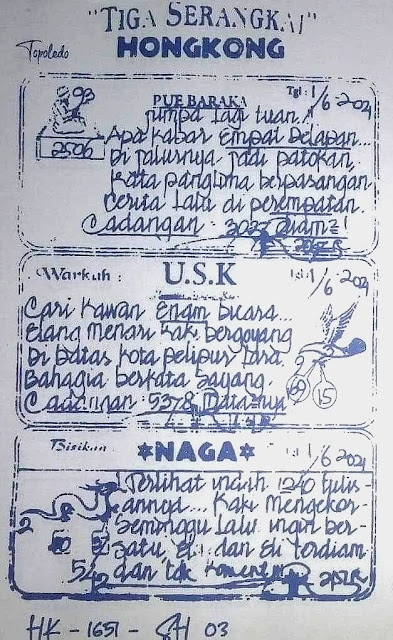 "TIGA SERANGKAI"
Topoledo
HONGKONG
93
2506
Tgl : 1/6-2021
PUE BARAKA
Jumpa lagi tuan..!
Apa kabar Empat Delapan...
Di jalurnya jadi patokan
Kata panglima berpasangan
Cerita lalu di perempatan
Cadangan : 3027
Warkah :
U.S.K
Tgl 1/6-2021
Cari kawan Enam bicara...
Elang menari kaki bergoyang
Di batas kota pelipur lara
Bahagia berkata sayang.
Cadangan : 5378
15
Bisikan
*NAGA*
Tgl 1/6 2021
Terlihat indah 1240 tulis-
annya... Kaki mengekor
2
Seminggu lalu ingin ber-
satu dan terdiam
dan tak komen
HK - 1651 - 03